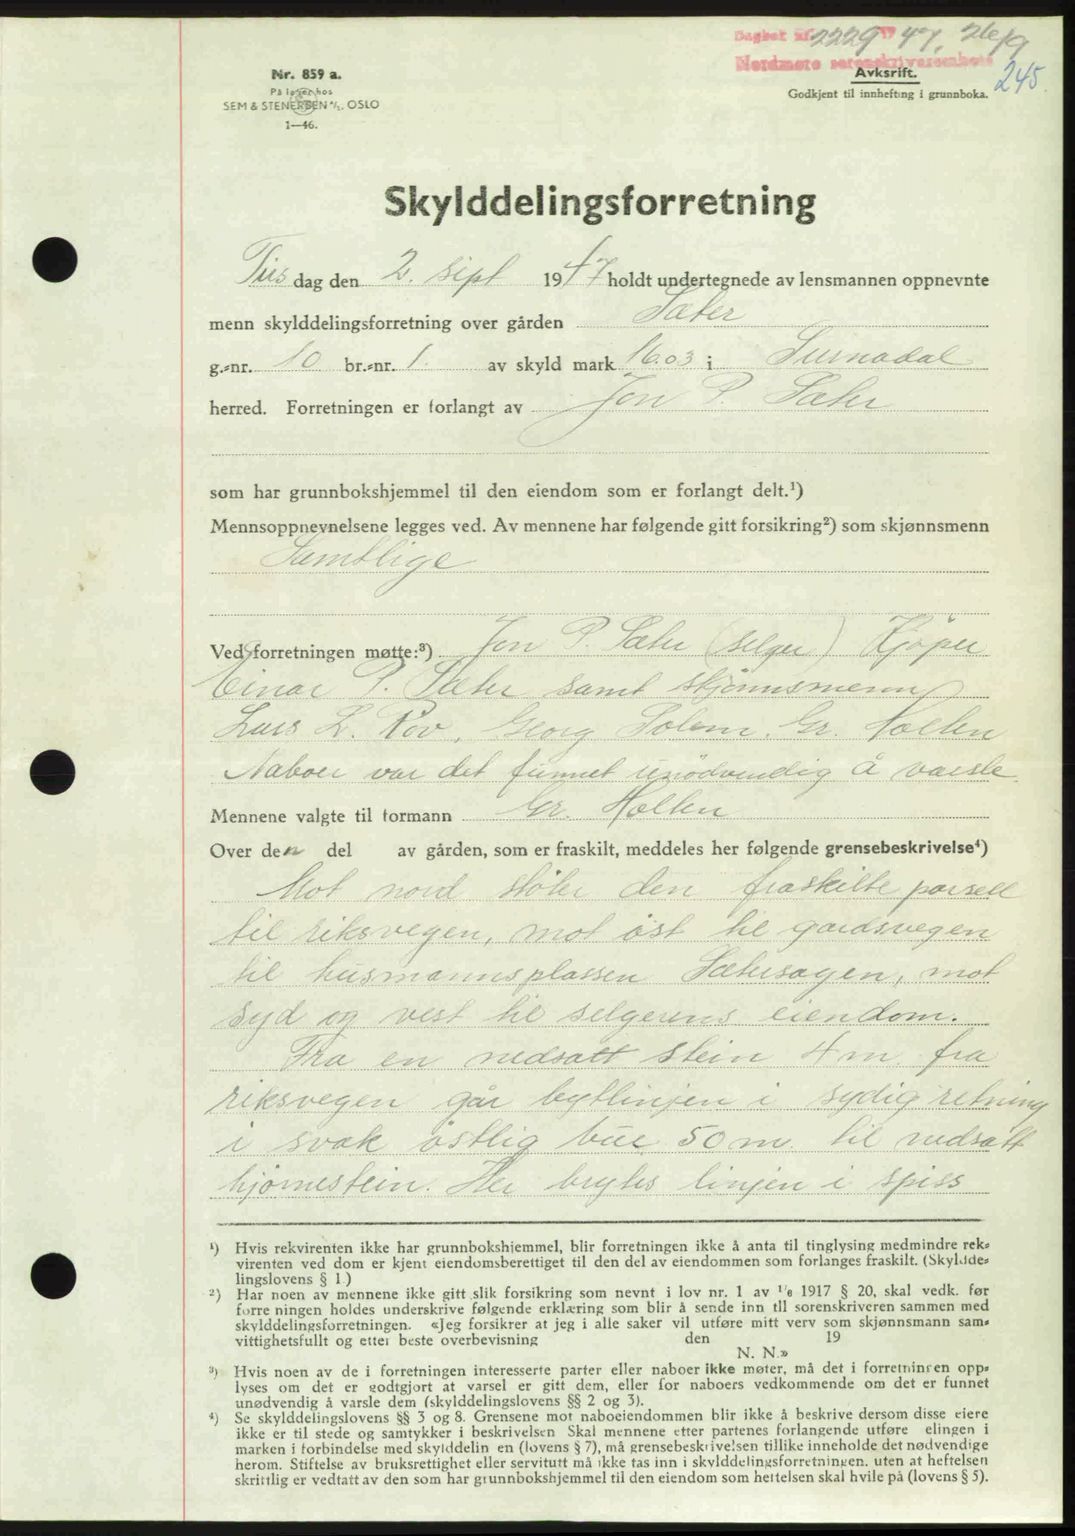 Dagbok nr. 2229 1947, 26/9
Nordmøre sorenskriverembete
245.
Nr. 859 a.
På lager hos
SEM & STENERSEN A/S, OSLO
1—46.
Avskrift.
Godkjent til innhefting i grunnboka.
Skylddelingsforretning
Tirsdag den 2. sept 1947 holdt undertegnede av lensmannen oppnevnte
menn skylddelingsforretning over gården Sæter
g.-nr. 10 br.-nr. 1. av skyld mark 16.03 i Surnadal
herred. Forretningen er forlangt av Jon P. Sæter
som har grunnbokshjemmel til den eiendom som er forlangt delt.¹)
Mennsoppnevnelsene legges ved. Av mennene har følgende gitt forsikring²) som skjønnsmenn
Samtlige
Ved forretningen møtte:³) Jon P. Sæter (selger) Kjøper
Einar P. Sæter samt skjønnsmenn
Lars L. Røv, Georg Solem, Gr. Holten
Naboer var det funnet unødvendig å varsle.
Mennene valgte til formann Gr. Holten
Over den del av gården, som er fraskilt, meddeles her følgende grensebeskrivelse⁴)
Mot nord støter den fraskilte parsell
til riksvegen, mot öst til gardsvegen
til husmannsplassen Sætersagen, mot
syd og vest til selgerens eiendom.
Fra en nedsatt stein 4 m. fra
riksvegen går bytlinjen i sydig retning
i svak östlig bue 50 m. til nedsatt
hjörnestein. Her brytes linjen i spiss
¹) Hvis rekvirenten ikke har grunnbokshjemmel, blir forretningen ikke å anta til tinglysing medmindre rek-
virenten ved dom er kjent eiendomsberettiget til den del av eiendommen som forlanges fraskilt. (Skyldde-
lingslovens § 1.)
²) Har noen av mennene ikke gitt slik forsikring som nevnt i lov nr. 1 av 1/6 1917 § 20, skal vedk. før
forre ningen holdes underskrive følgende erklæring som blir å sende inn til sorenskriveren sammen med
skylddelingsforretningen. «Jeg forsikrer at jeg i alle saker vil utføre mitt verv som skjønnsmann sam-
vittighetsfullt og etter beste overbevisning den 19
N. N.»
³) Hvis noen av de i forretningen interesserte parter eller naboer ikke møter, må det i forretningen opp-
lyses om det er godtgjort at varsel er gitt dem, eller for naboers vedkommende om det er funnet
unødvendig å varsle dem (skylddelingslovens §§ 2 og 3).
⁴) Se skylddelingslovens §§ 3 og 8. Grensene mot naboeiendommen blir ikke å beskrive dersom disse eiere
ikke er til stede og samtykker i beskrivelsen Skal mennene etter partenes forlangende utføre elingen i
marken i forbindelse med skylddelin en (lovens § 7), må grensebeskrivelsen tillike inneholde det nødvendige
herom. Stiftelse av bruksrettighet eller servitutt må ikke tas inn i skylddelingsforretningen. uten at heftelsen
skriftlig er vedtatt av den som har grunnbokshjemmel til den eiendom som heftelsen skal hvile på (lovens § 5).